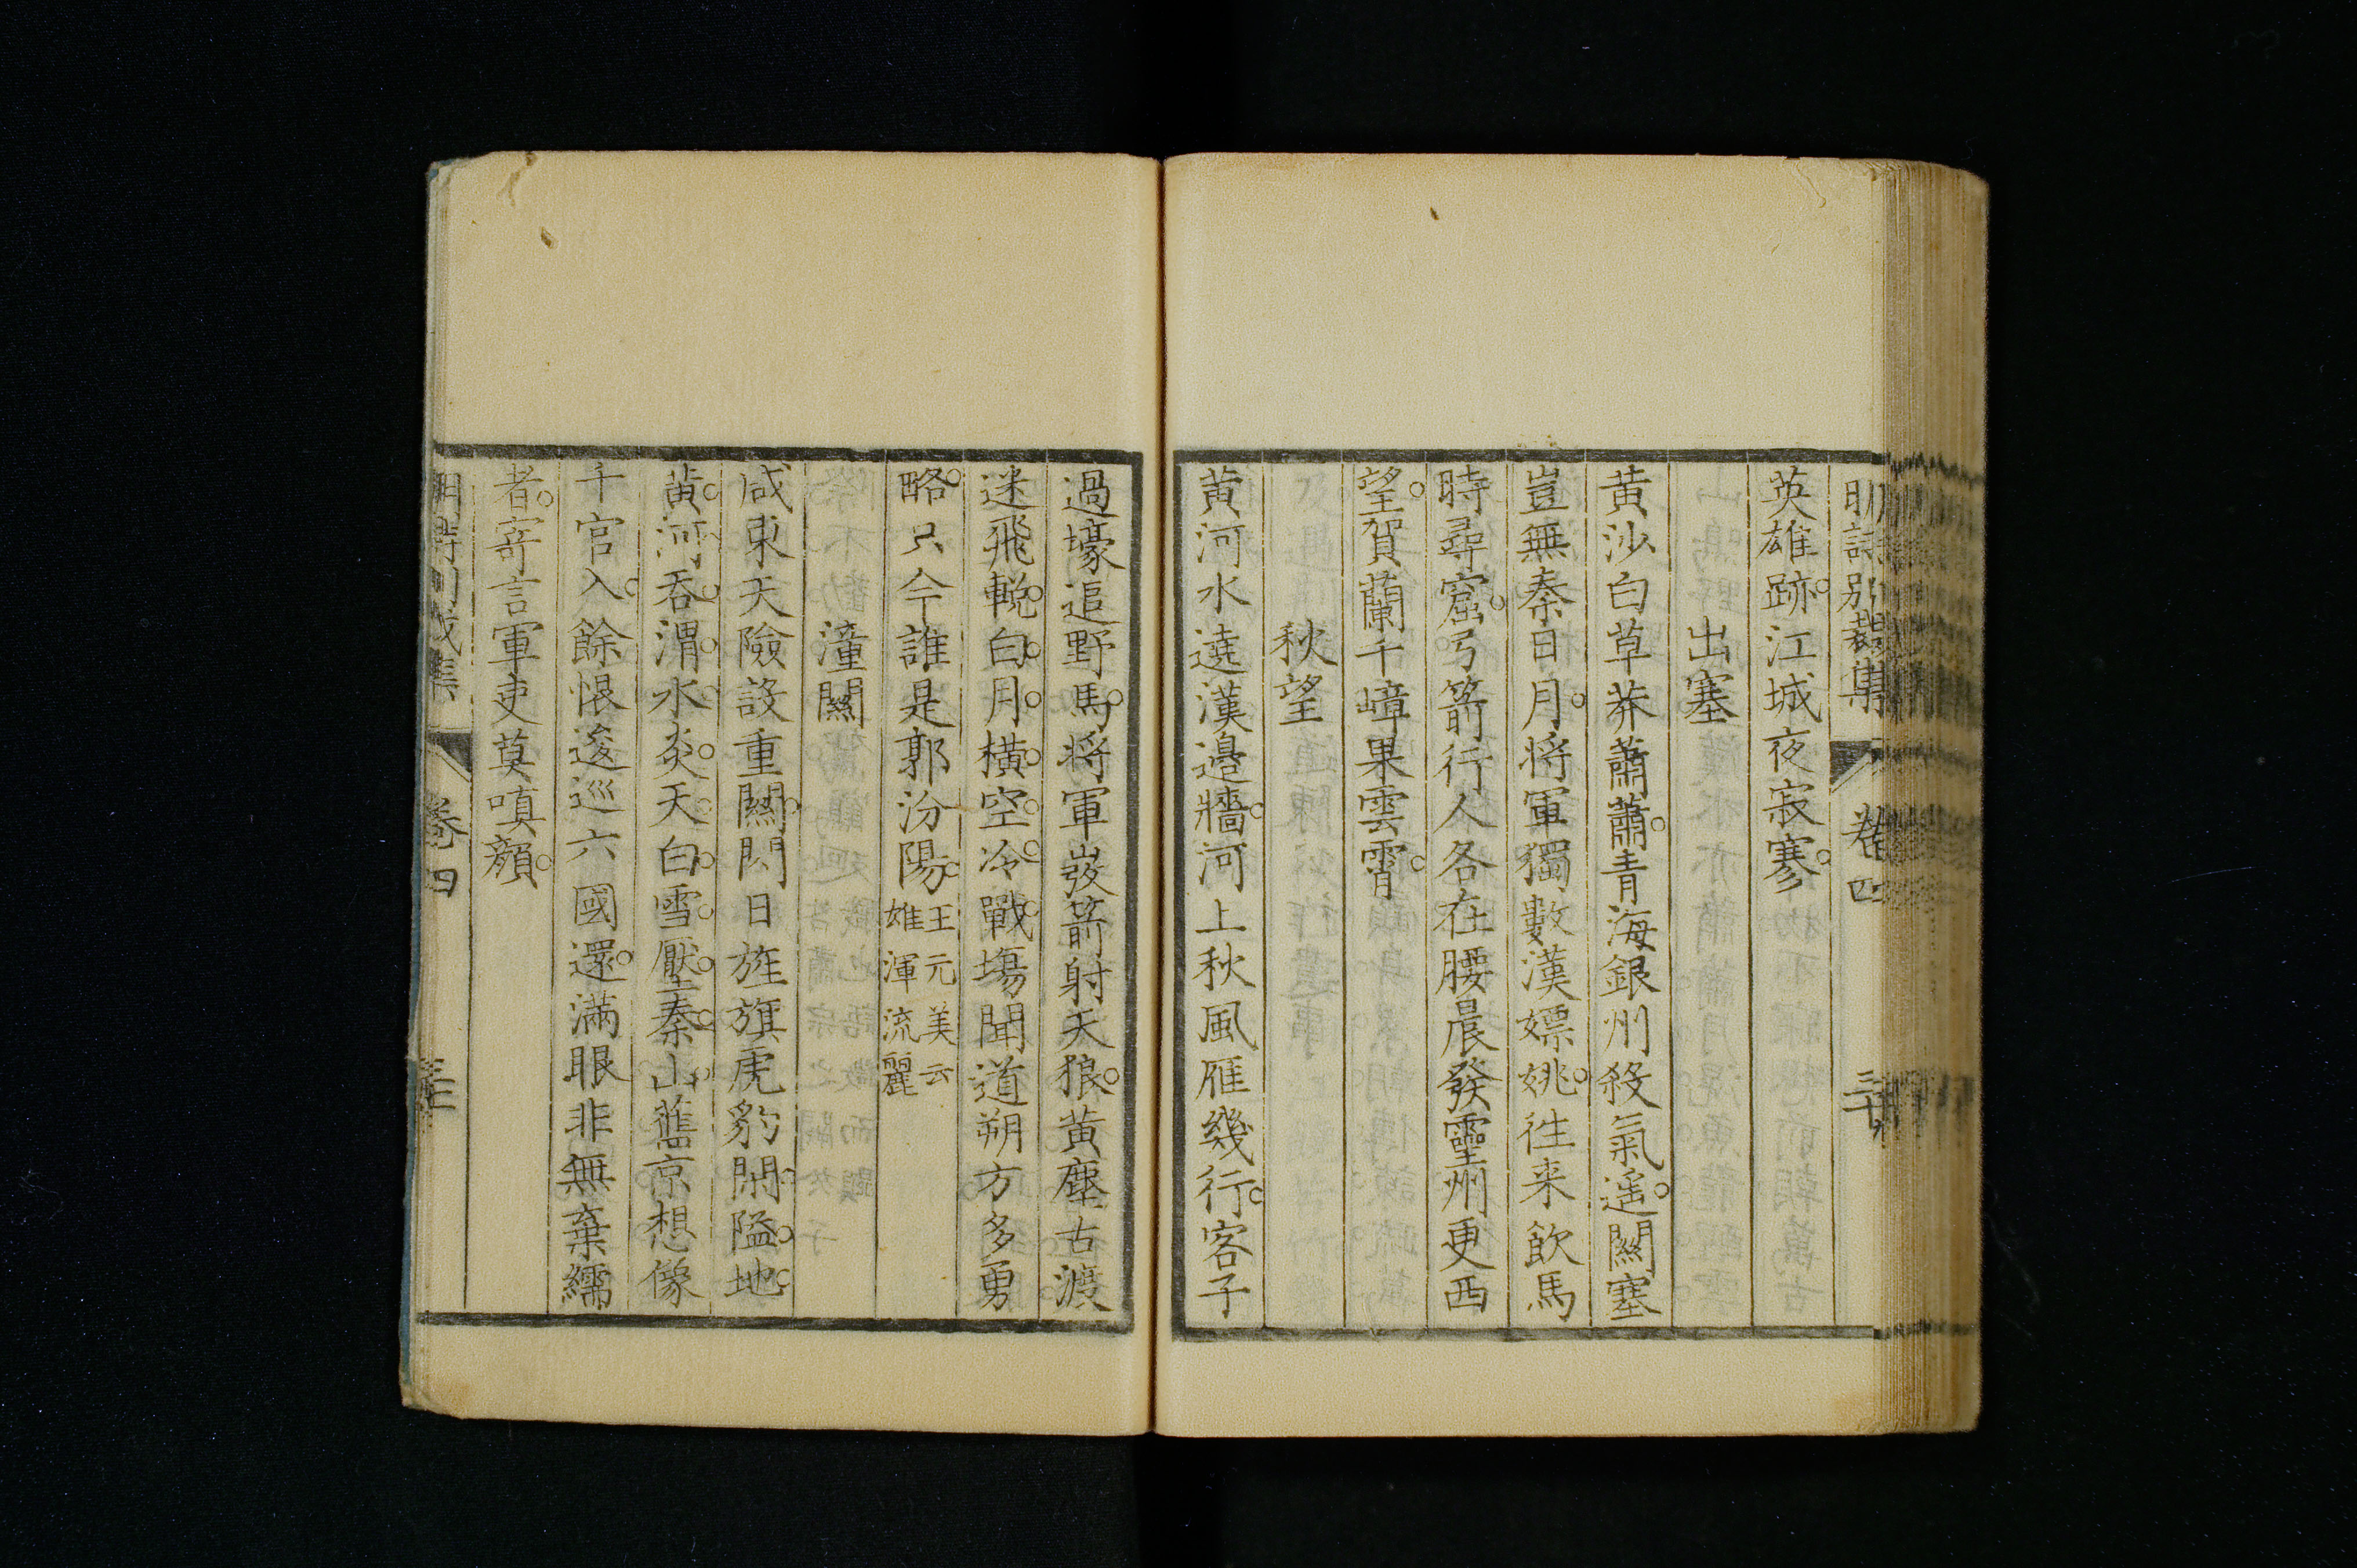 明詩別裁集 卷四
英雄跡江城夜寂寥
出塞
黄沙白草莽蕭蕭青海銀州殺氣遥關塞
豈無秦日月將軍獨數漢嫖姚徃来飲馬
時尋窟弓箭行人各在腰晨發靈州更西
望賀蘭千嶂果雲霄
秋望
黄河水遶漢邊牆河上秋風雁幾行客子
過壕追野馬將軍弢箭射天狼黄塵古渡
迷飛輓白月橫空冷戰塲聞道朔方多勇
略只今誰是郭汾陽
王元美云
雄渾流麗
潼關
咸東天險設重關閃日旌旗虎豹閑隘地
黄河吞渭水炎天白雪壓秦山舊京想像
千官入餘恨逡巡六國還滿眼非無棄繻
者寄言軍吏莫嗔顏
卷四